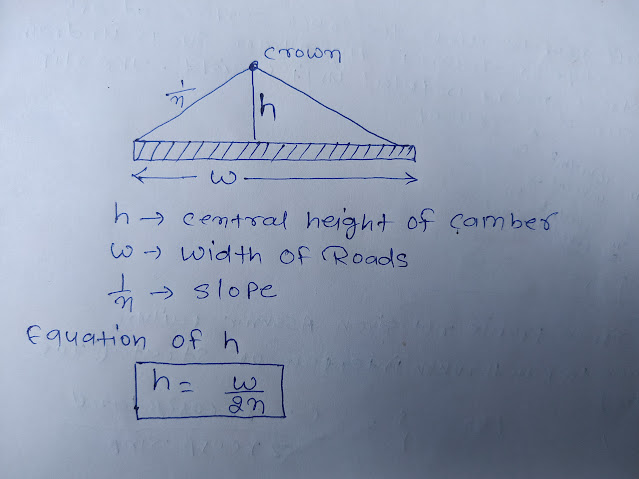 crown
1/n
h
w
h → central height of camber
w → width of Roads
1/n → slope
Equation of h
h = w/2n